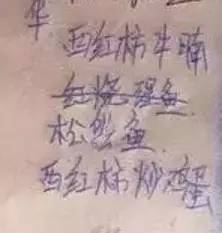 西红柿牛腩
红烧鳗鱼
松鼠鱼
西红柿炒鸡蛋